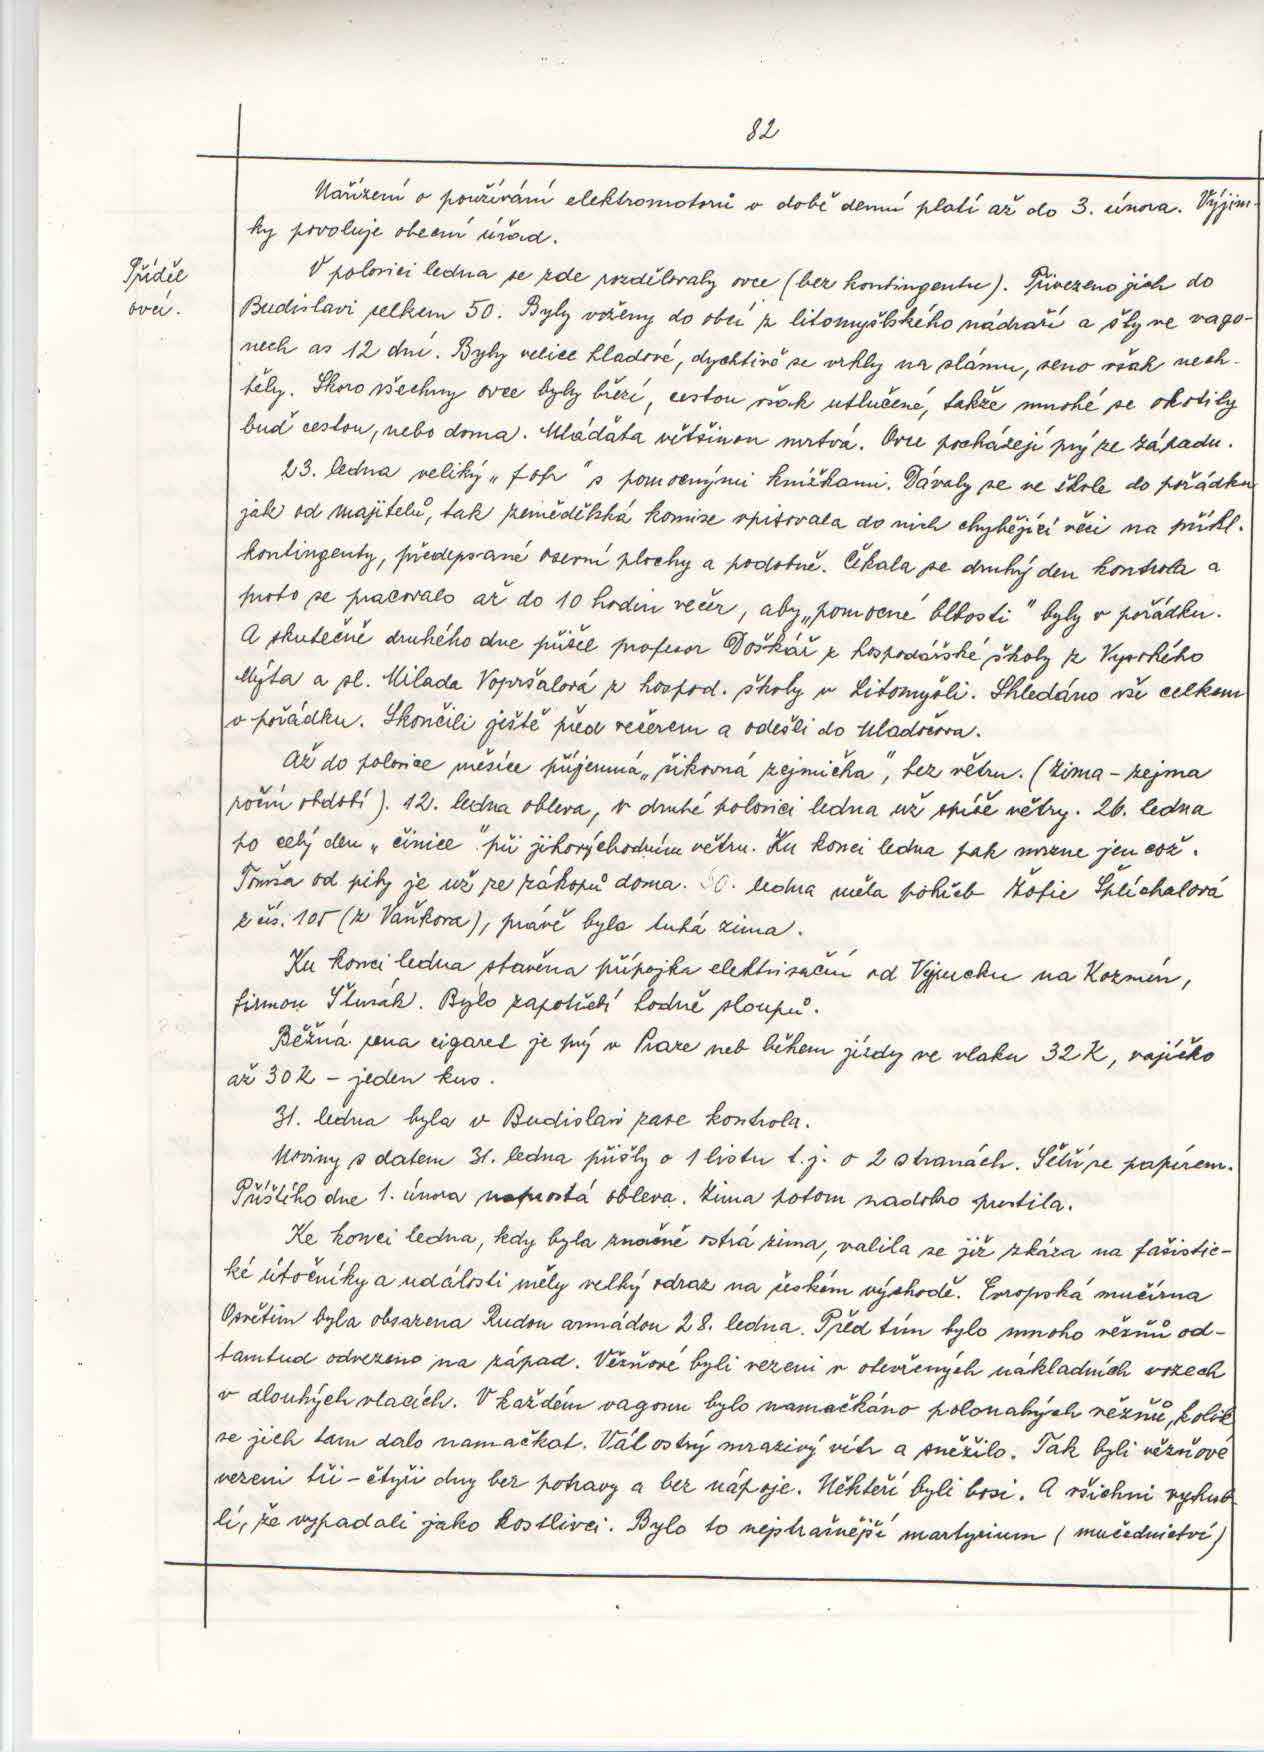 82
Nařízení o používání elektromotorů v době denní platí až do 3. února. Výjim-
ky povoluje obecní úřad.
Příděl
ovcí.
V polovici ledna se zde rozdělovaly ovce (bez kontingentu). Přivezeno jich do
Budislavi celkem 50. Byly voženy do obcí z litomyšlského nádraží a šly ve vago-
nech as 12 dní. Byly velice hladové, dychtivě se vrhly na slámu, seno však nech-
těly. Skoro všechny ovce byly březí, cestou však utlučené, takže mnohé se okotily
buď cestou, nebo doma. Mláďata většinou mrtvá. Ovce pocházejí prý ze západu.
23. ledna veliký „fofr" s pomocnými knížkami. Dávaly se ve škole do pořádku
jak od majitelů, tak zemědělská komise vpisovala do nich chybějící věci na příkl.
kontingenty, předepsané osevní plochy a podobně. Čekala se druhý den kontrola a
proto se pracovalo až do 10 hodin večer, aby „pomocné blbosti" byly v pořádku.
A skutečně druhého dne přišel profesor Doškář z hospodářské školy z Vysokého
Mýta a sl. Milada Vopršalová z hospod. školy v Litomyšli. Shledáno vše celkem
v pořádku. Skončili ještě před večerem a odešli do Mladočova.
Až do polovice měsíce příjemná „šikovná zejmička", bez větru. (Zima - zejma
roční období). 12. ledna obleva, v druhé polovici ledna už spíše větry. 26. ledna
po celý den „činice" při jihovýchodním větru. Ku konci ledna pak mrzne jen což.
Tomša od pily je už ze zákopů doma. 30. ledna měla pohřeb Žofie Šplíchalová
z čís. 105 (z Vaňkova), právě byla tuhá zima.
Ku konci ledna stavěna přípojka elektrisační od Vejrucku na Kozmín,
firmou Šturák. Bylo zapotřebí hodně sloupů.
Běžná cena cigaret je prý v Praze neb během jízdy ve vlaku 32 K, vajíčko
až 30 K - jeden kus.
31. ledna byla v Budislavi zase kontrola.
Noviny s datem 31. ledna přišly o 1 listu t.j. o 2 stranách. Šetří se papírem.
Příštího dne 1. února naprostá obleva. Zima potom nadobro pustila.
Ke konci ledna, kdy byla značně ostrá zima, valila se již zkáza na fašistic-
ké útočníky a události měly velký odraz na českém východě. Evropská mučírna
Osvětim byla obsazena Rudou armádou 28. ledna. Před tím bylo mnoho vězňů od-
tamtud odvezeno na západ. Vězňové byli vezeni v otevřených nákladních vozech
v dlouhých vlacích. V každém vagonu bylo namačkáno polonahých vězňů, kolik
se jich tam dalo namačkat. Vál ostrý mrazivý vítr a sněžilo. Tak byli vězňové
vezeni tři - čtyři dny bez potravy a bez nápoje. Někteří byli bosi. A všichni vyhub-
lí, že vypadali jako kostlivci. Bylo to nejstrašnější martyrium (mučednictví)